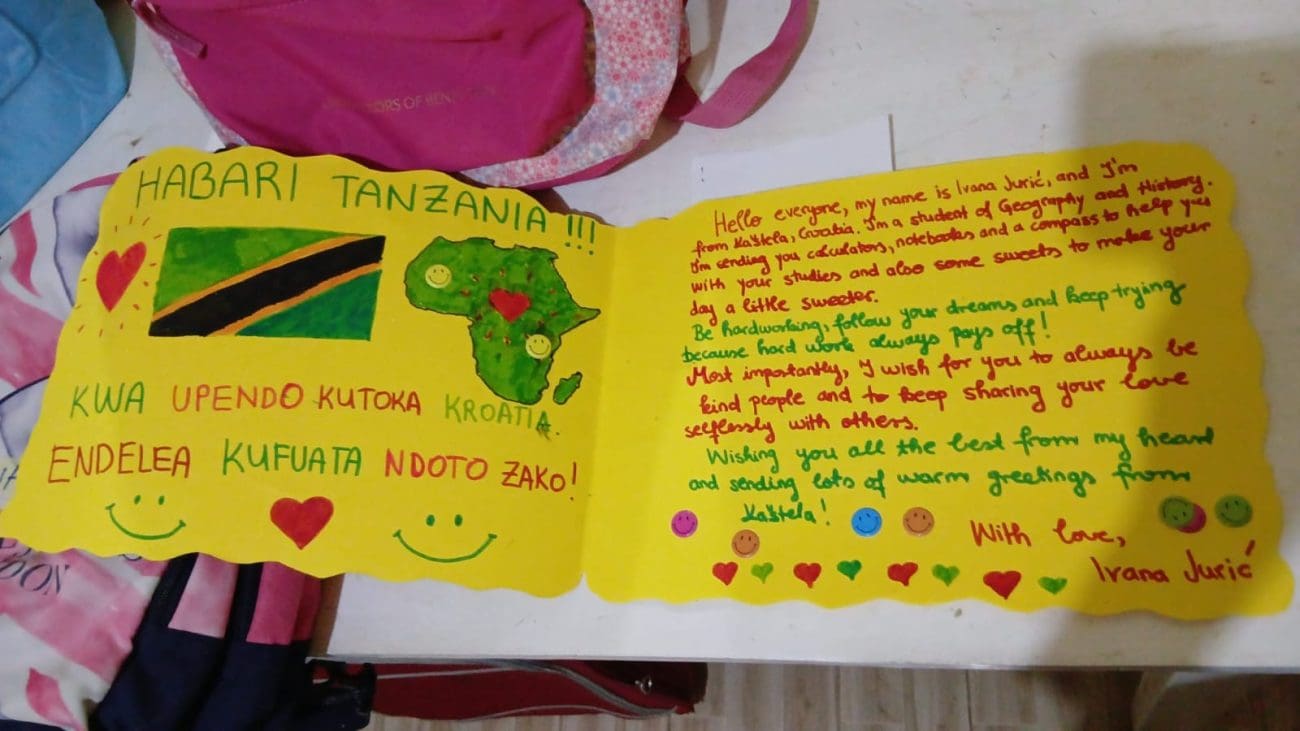 HABARI TANZANIA !!!
KWA UPENDO KUTOKA KROATIA.
ENDELEA KUFUATA NDOTO ZAKO!
Hello everyone, my name is Ivana Jurić, and I'm
from Kaštela, Croatia. I'm a student of Geography and History.
I'm sending you calculators, notebooks and a compass to help you
with your studies and also some sweets to make your
day a little sweeter.
Be hardworking, follow your dreams and keep trying
because hard work always pays off!
Most importantly, I wish for you to always be
kind people and to keep sharing your love
selflessly with others.
Wishing you all the best from my heart
and sending lots of warm greetings from
Kaštela!
With love,
Ivana Jurić
ORS OF BEN